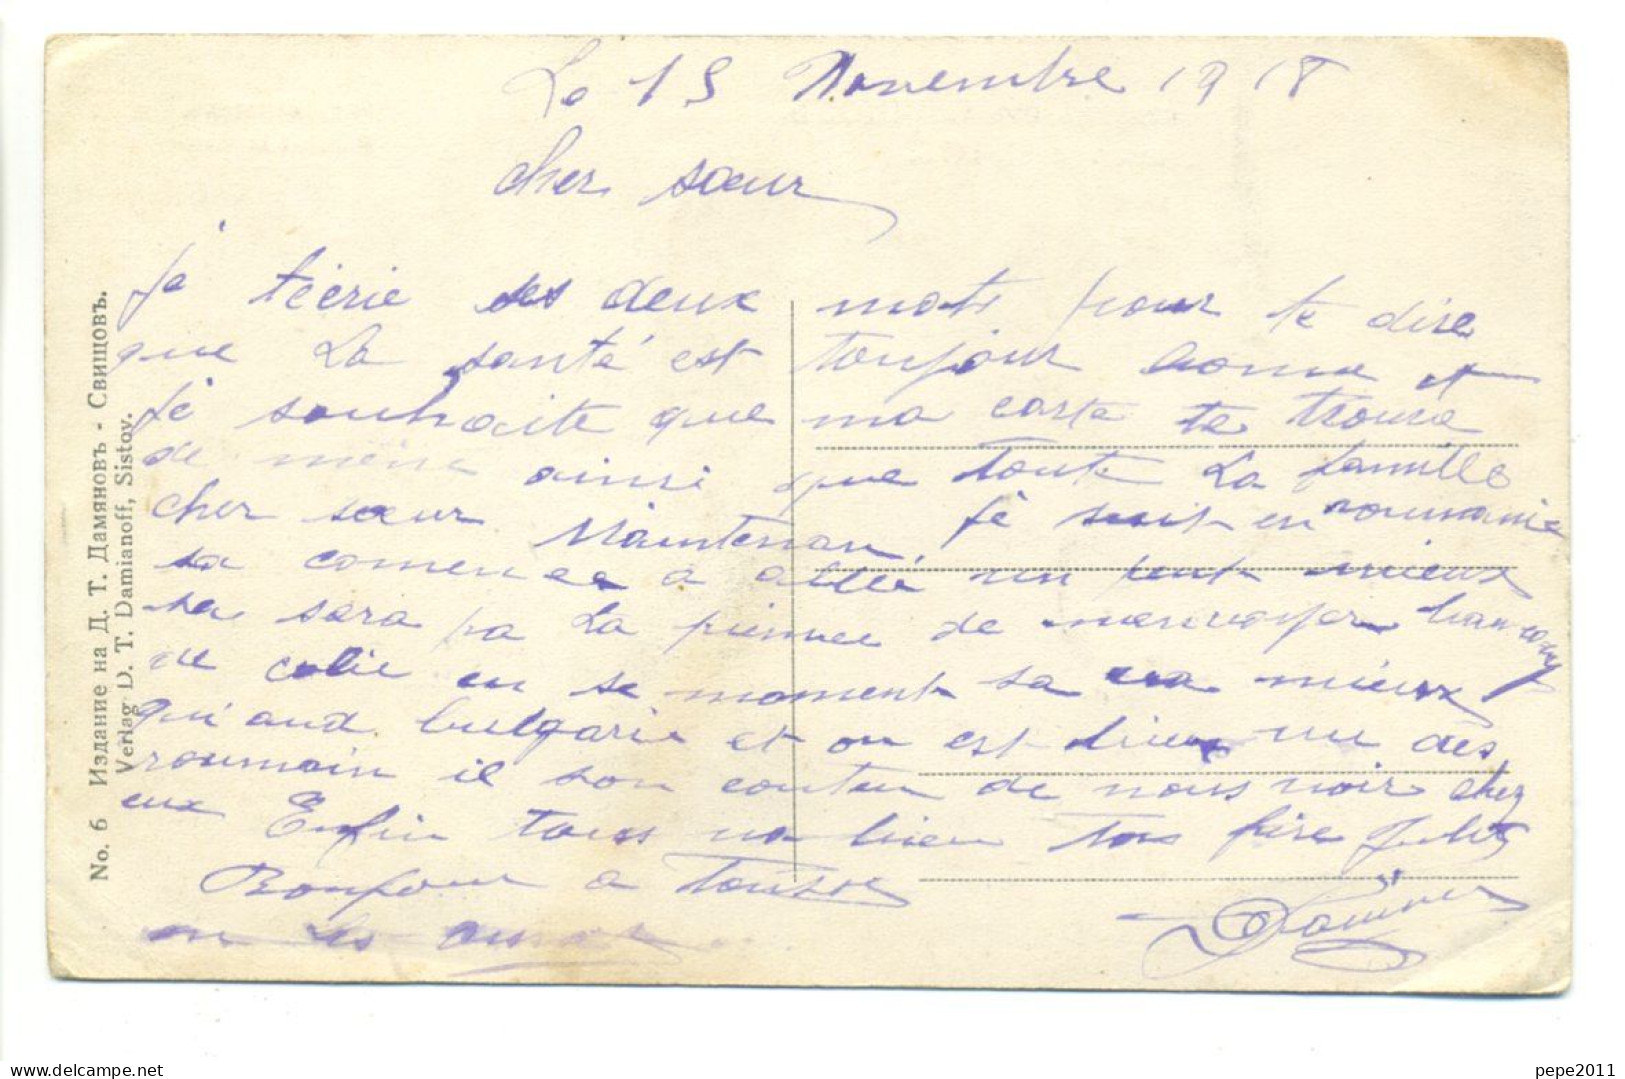 Le 15 Novembre 1918
cher sœur
je técrie ses deux mots pour te dire
que La santé est toujour bonne et
je souhaite que ma carte te trouve
de même ainsi que toute La famille
cher sœur Maintenan je suit en roumanie
sa comence a allér un peut mieux
sa sera pa La pienne de
de colie en se moment sa va mieux
qu'and bulgarie et on est bien vu des
roumain il son conten de nous voir chez
eux Enfin tous va bien ton frére Jules
Bonjour a Toutse
No. 6 Издание на Д. Т. Дамяновъ - Свищовъ.
Verlag D. T. Damianoff, Sistov.
www.delcampe.net
pepe2011